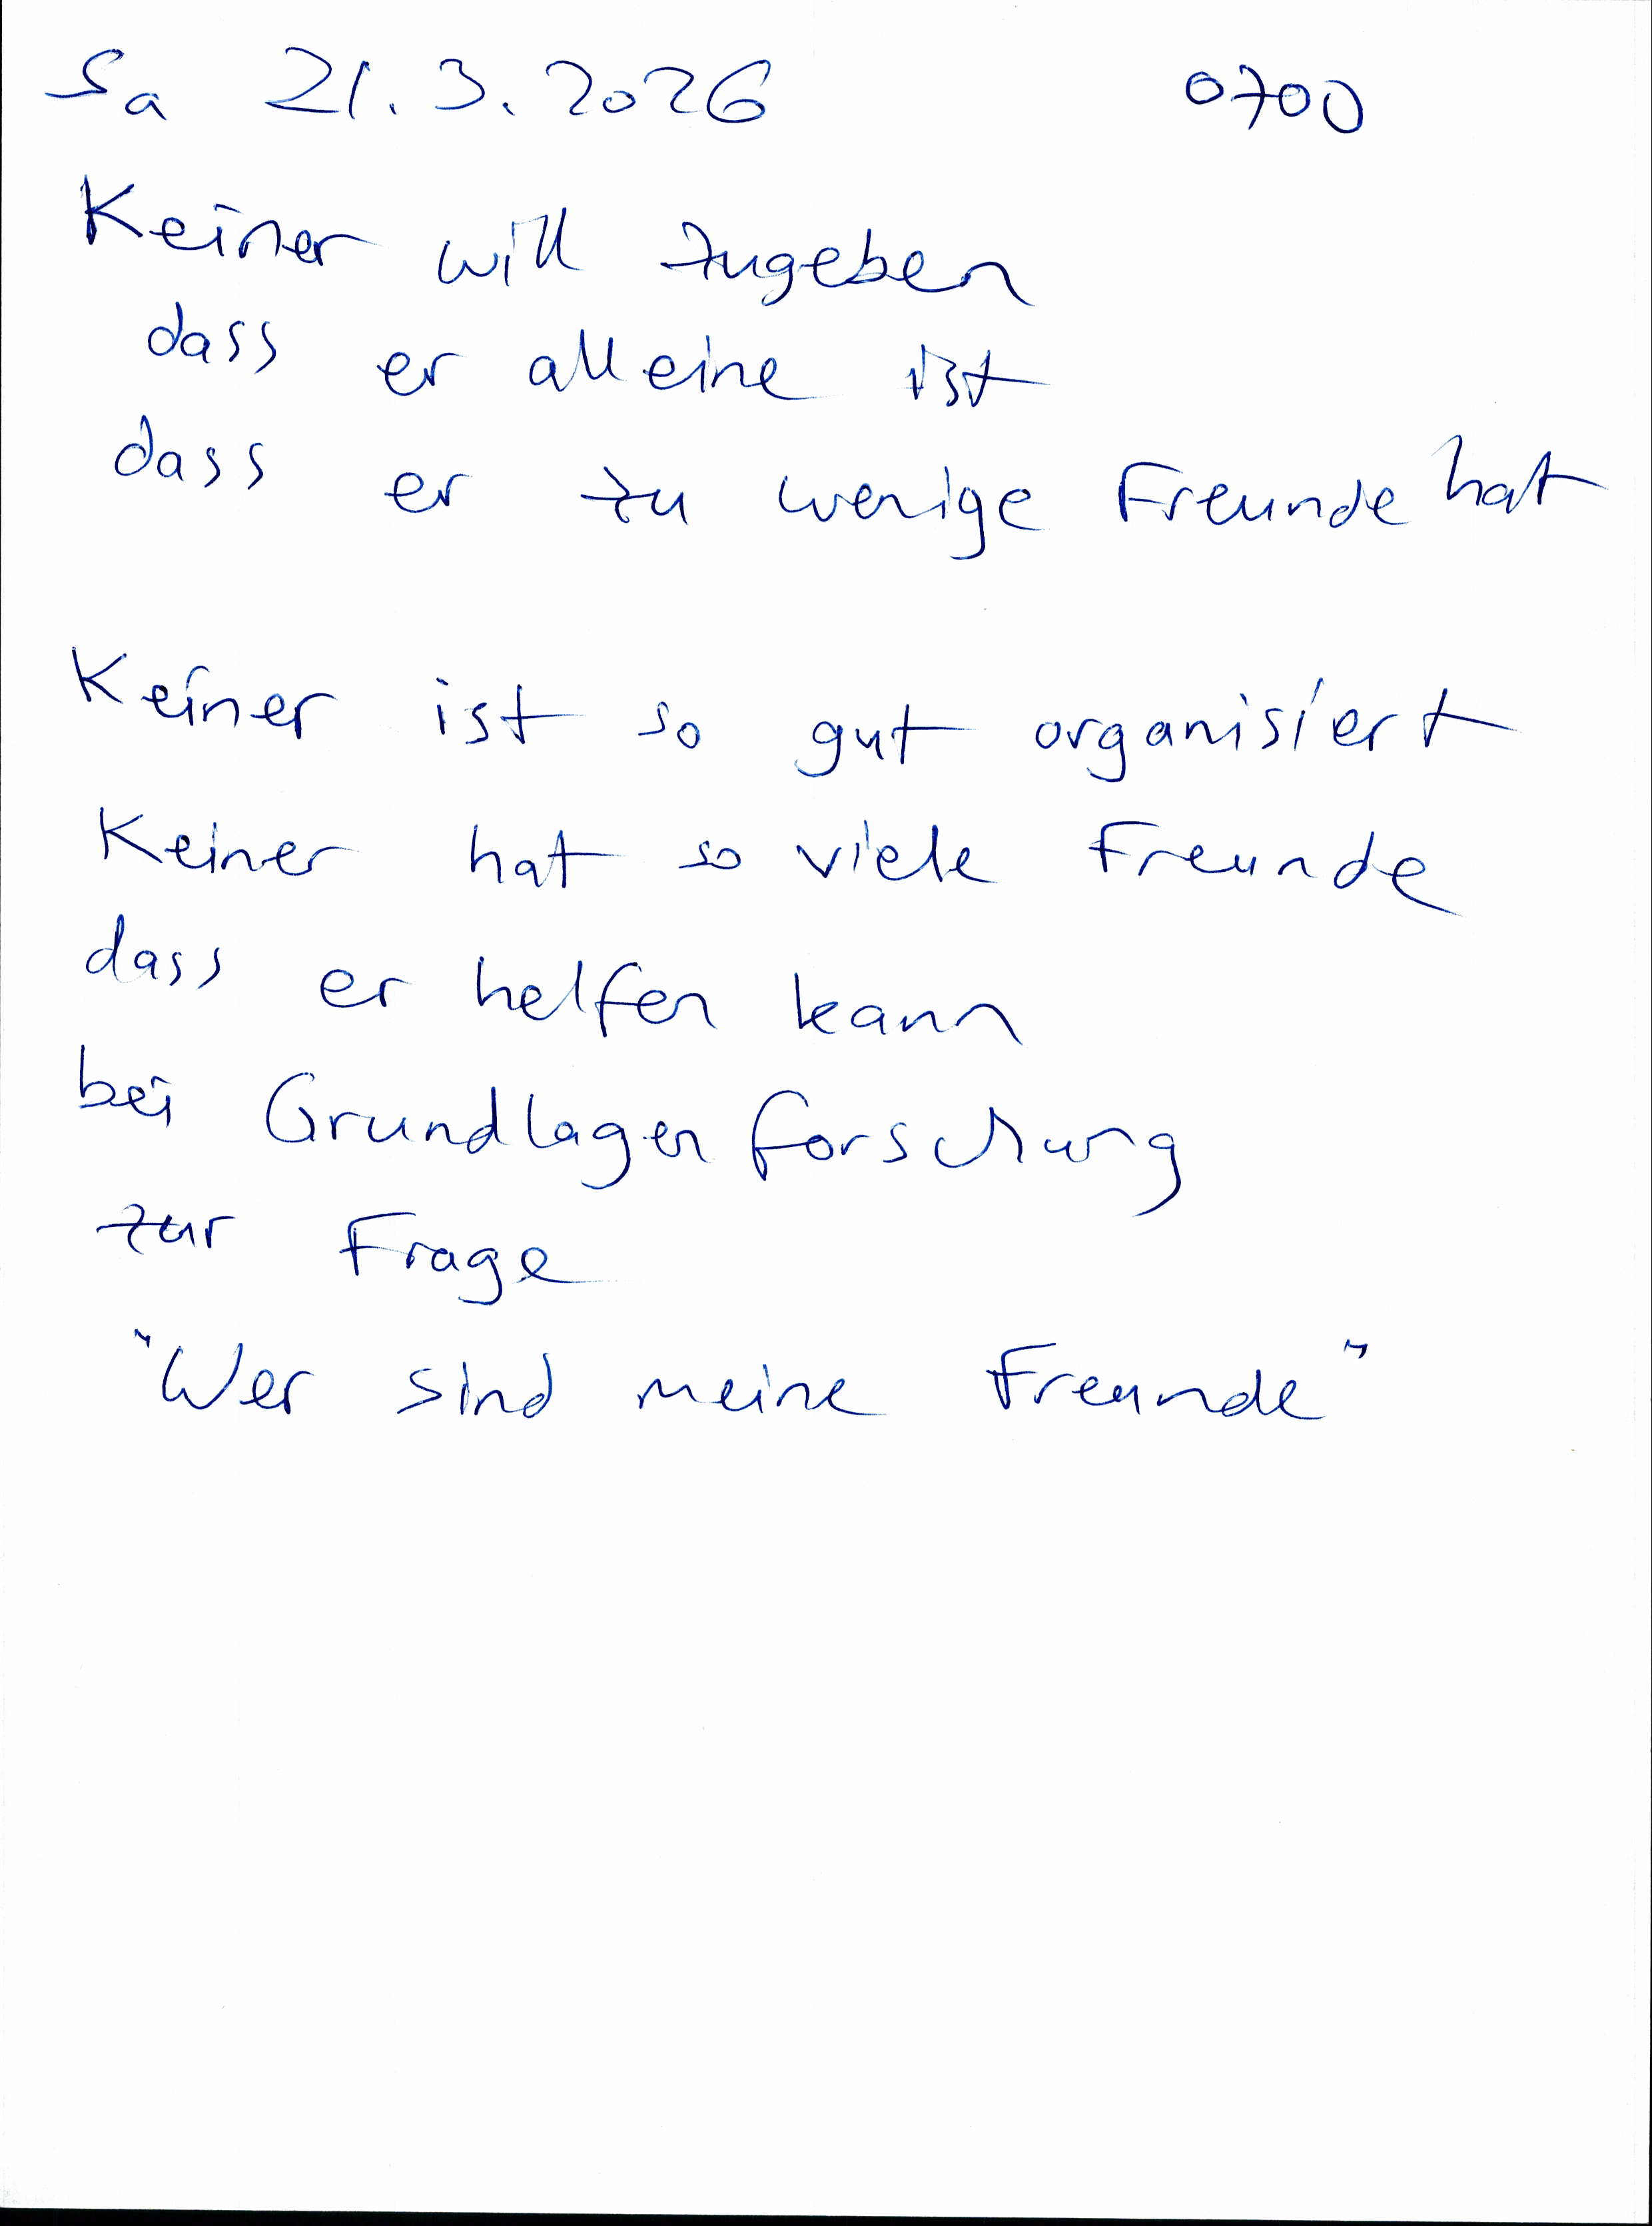 Sa 21.3.2026 0700
Keiner will zugeben
dass er alleine ist
dass er zu wenige Freunde hat
Keiner ist so gut organisiert
Keiner hat so viele Freunde
dass er helfen kann
bei Grundlagenforschung
zur Frage
"Wer sind meine Freunde"